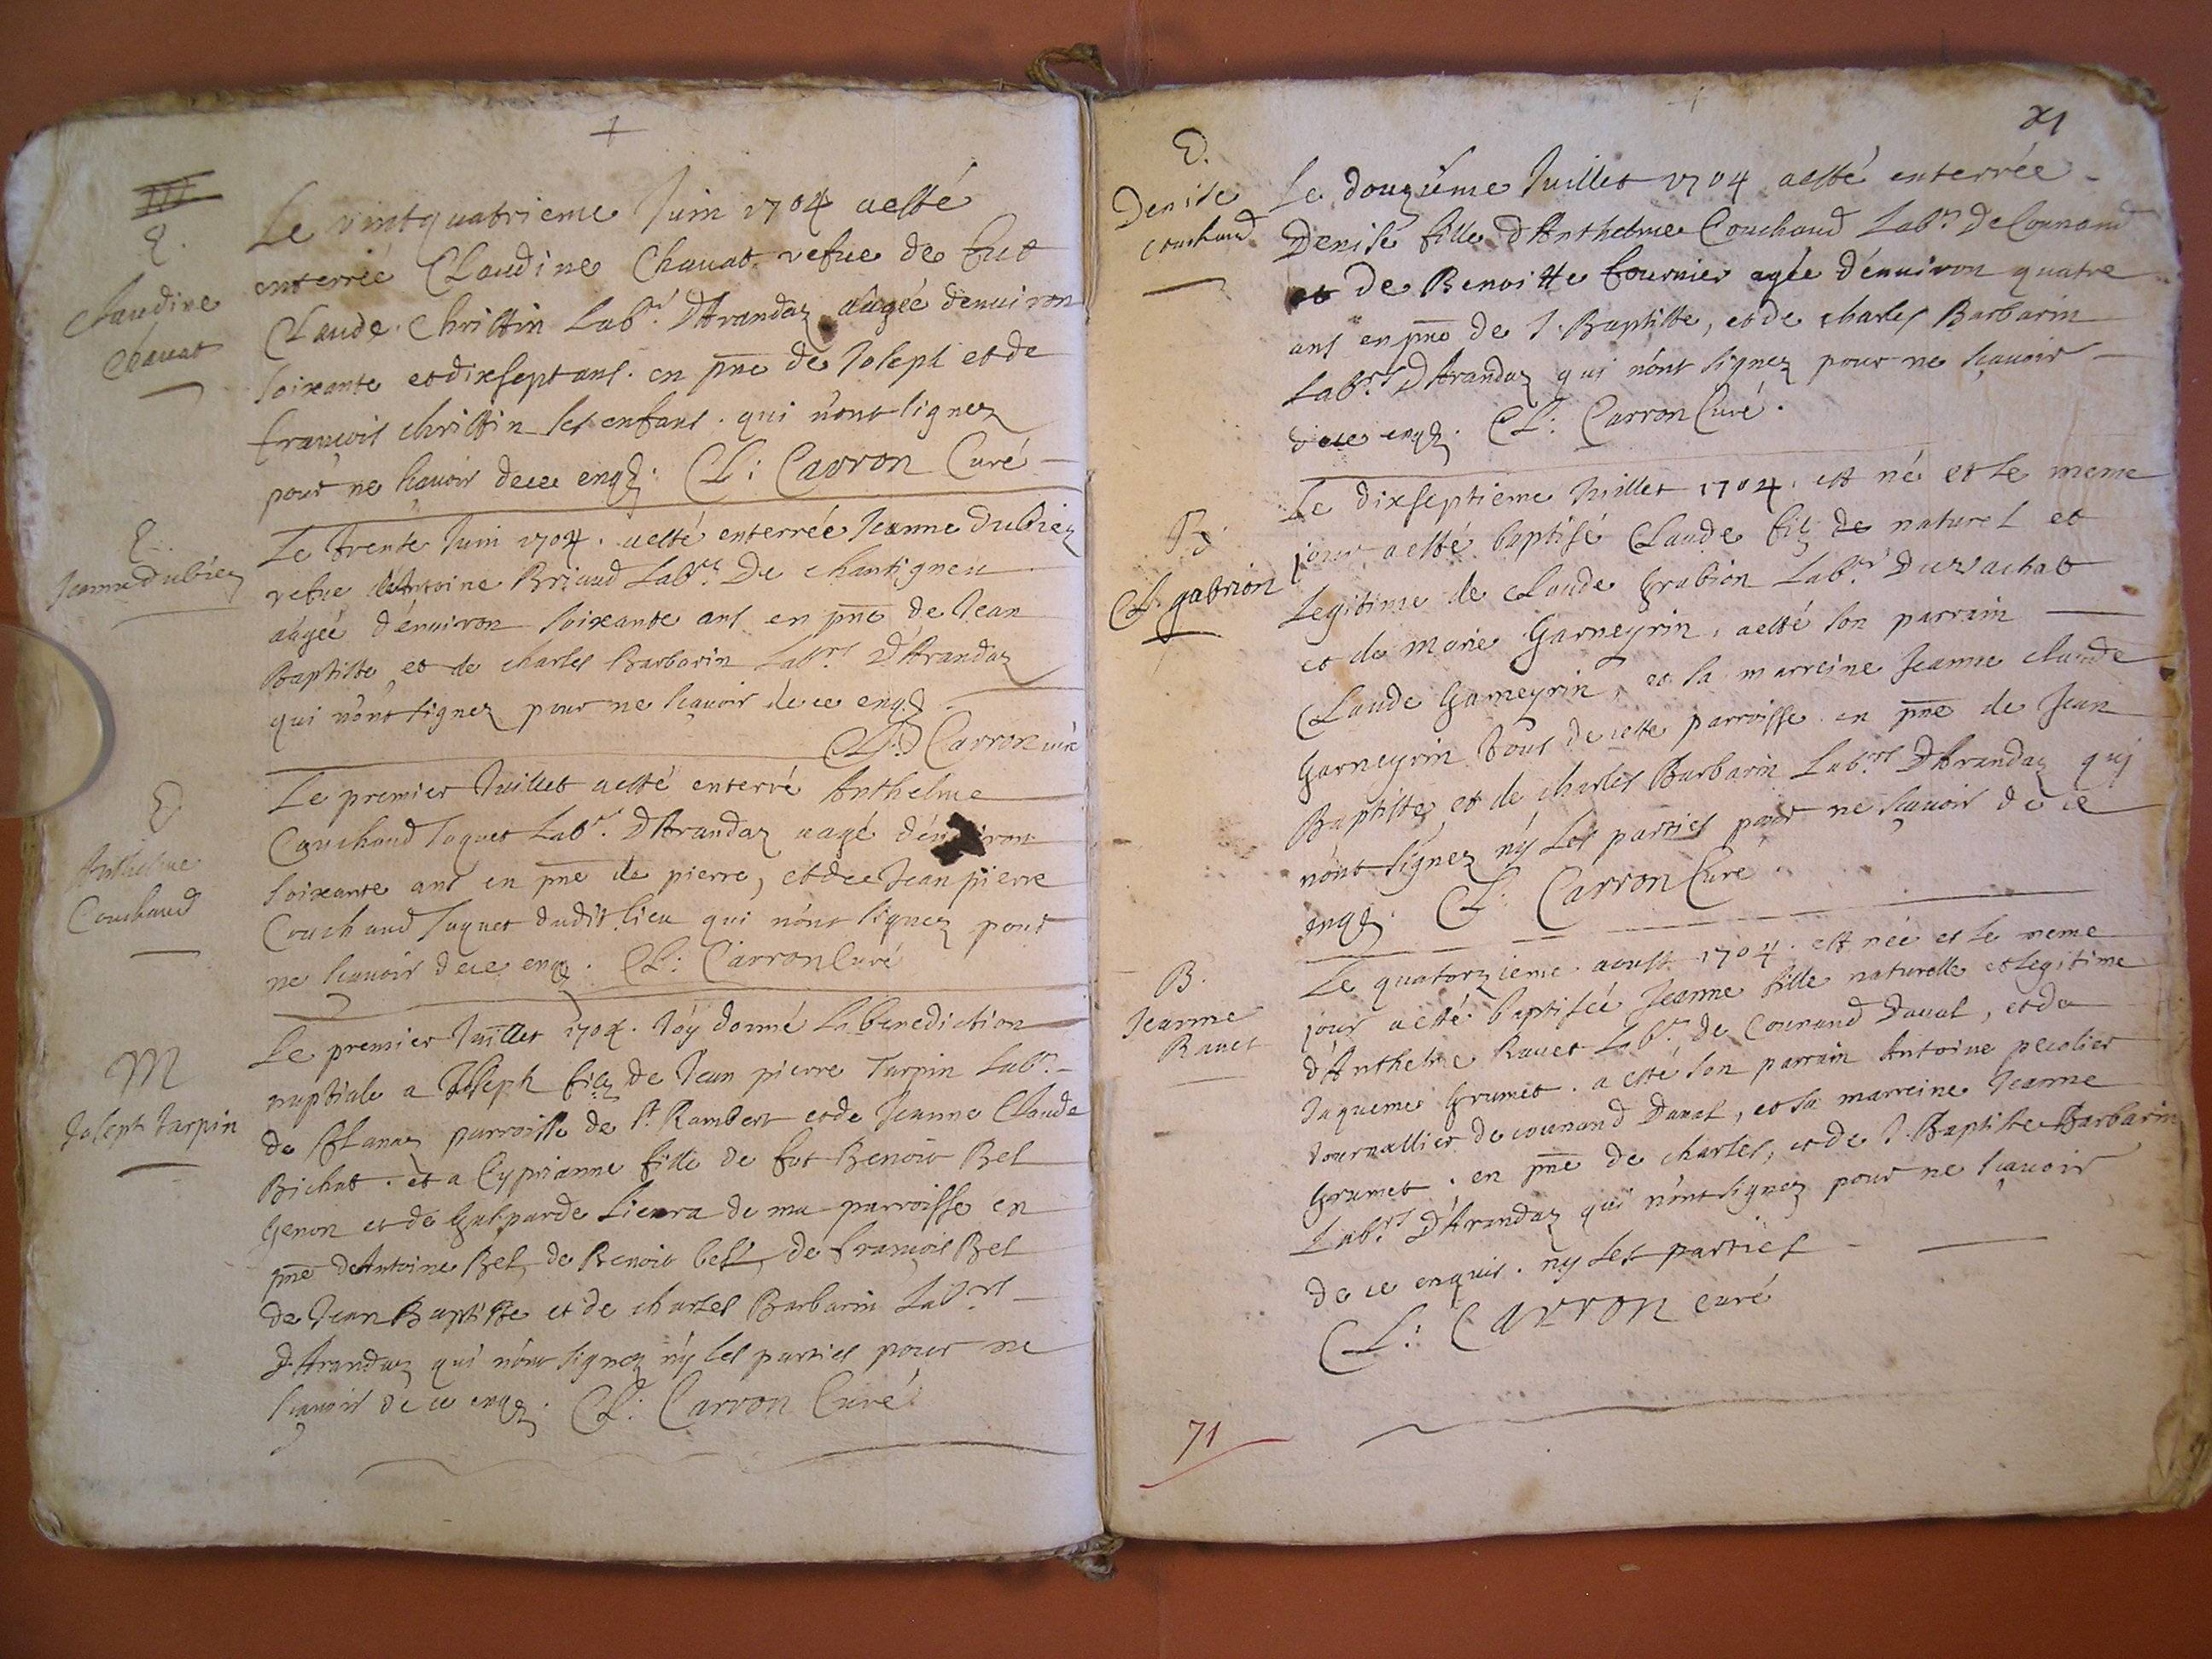 +
E.
Claudine
Chavat
Le vintquatrieme Juin 1704 aesté
enterrée Claudine Chavat vefue de fut
Claude Christin Labr. D'Arandaz aagée denuiron
soixante et dixsept ans. en pñe de Joseph et de
françois christin ses enfans. qui n'ont signez
pour ne sçavoir de ce enqs. Cl: Carron Curé
E.
Jeanne Dubiez
Le trente Juin 1704. aesté enterrée Jeanne Dubiez
vefue d'Antoine Briaud Labrs De chantigneu
aagée d'enuiron soixante ans en pñe de Jean
Baptiste et de charles Barbarin Labrs D'Arandaz
qui n'ont signez pour ne sçavoir de ce enqs
Cl: Carron curé
E.
Anthelme
Couchaud
Le premier Juillet aesté enterré Anthelme
Couchaud Jaquet Labr. D'Arandaz aagé d'enuiron
soixante ans en pñe de pierre, et de Jean pierre
Couchaud Jaquet dudit lieu qui n'ont signez pour
ne sçavoir de ce enqs. Cl: Carron Curé
M
Joseph Turpin
Le premier Juillet 1704. J'ay donné la benediction
nuptiale a Joseph filz de Jean pierre Turpin Labr.
de parroisse de St Rambert et de Jeanne Claude
Bichat. et a Cyprianne fille de fut Benoit Bel
Genon et de Gasparde Lievra de ma parroisse en
pñe d'Antoine Bel, de Benoit bel, de françois Bel
de Jean Baptiste et de charles Barbarin Labrs
D'Arandaz qui n'ont signez n'y les parties pour ne
sçavoir de ce enqs. Cl: Carron Curé
E.
Denise
Couchaud
Le douzième Juillet 1704 aesté enterrée
Denise fille d'Anthelme Couchaud Labr. De Counand
et de Benoitte fournier agée d'enuiron quatre
ans en pñe de J. Baptiste, et de charles Barbarin
Labrs D'Arandaz qui n'ont signez pour ne sçavoir
de ce enqs. Cl: Carron Curé.
B.
Cl. gabrion
Le dixseptieme Juillet 1704. est né et le meme
jour aesté baptisé Claude filz de naturel et
Legitime de Claude Grabion Labr. Du Vachat
et de Marie Garneyrin, aesté son parrain
Claude Garneyrin, et sa marreine Jeanne Claude
Garneyrin tous de cette parroisse en pñe de Jean
Baptiste, et de charles Barbarin Labrs D'Arandaz qui
n'ont signez n'y Les parties pour ne sçavoir de ce
enqs. Cl: Carron Curé
B.
Jeanne
Ravet
Le quatorzieme aoust 1704. est née et le meme
jour aesté baptisée Jeanne fille naturelle et legitime
d'Anthelme Ravet Labr. de Counand Daval, et de
Jaquemes Grumet. a esté son parrain Antoine pecolier
Journallier de counand Daval, et sa marreine Jeanne
Grumet. en pñe de charles, et de J. Baptiste Barbarin
Labrs D'Arandaz qui n'ont signez pour ne sçavoir
de ce enquis. ny les parties
Cl: Carron curé
71